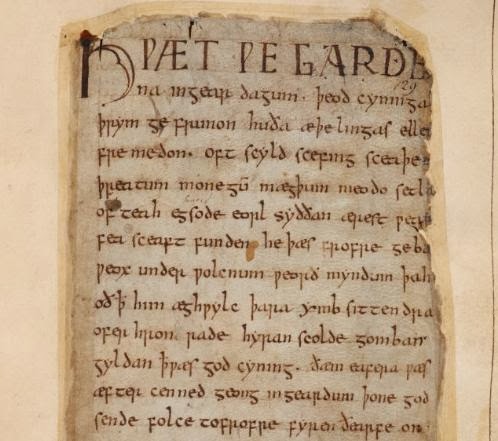 HǷÆT ǷE GARDE
na ingear dagum. þeod cyninga
þrym ge frunon huða æþelingas elle
fre medon. oft scyld scefing sceaþe
þreatum monegū mægþum meodo setla
of teah egsode eorl syððan ærest ƿear
fea sceaft funden he þæs frofre geba
ƿeox under ƿolcnum ƿeorð myndum þah
oð ꝥ him æghƿylc þara ymb sittendra
ofer hron rade hyran scolde gomban
gyldan þæt ƿæs god cyning. ðæm eafera ƿæs
æfter cenned geong ingeardum þone god
sende folce tofrofre fyren ðearfe on